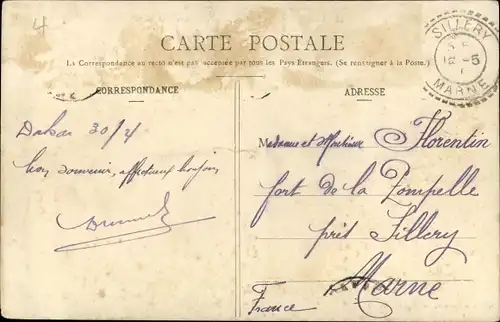 4
CARTE POSTALE
La Correspondance au recto n'est pas acceptée par tous les Pays Étrangers. (Se renseigner à la Poste.)
SILLERY
12-5
MARNE
CORRESPONDANCE
ADRESSE
Dakar 30/4
bon souvenir, affectueux
Madame et Monsieur Florentin
fort de la Pompelle
près Sillery
Marne
France